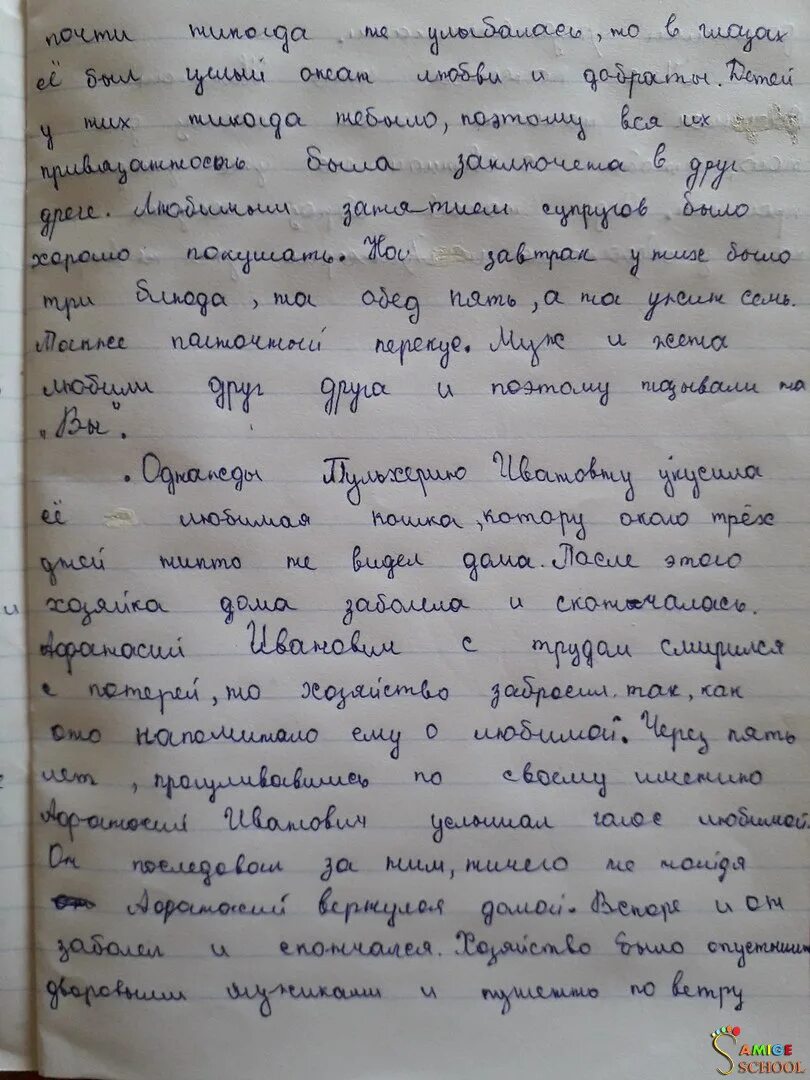 почти никогда не улыбалась, но в глазах
её был целый океан любви и добраты. Детей
у них никогда небыло, поэтому вся их
привязанность была заключена в друг
друге. Любимым занятием супругов было
хорошо покушать. На завтрак у них было
три блюда, на обед пять, а на ужин семь.
перекус. Муж и жена
любили друг друга и поэтому называли на
"Вы".
Однажды Пульхерию Ивановну укусила
её любимая кошка, котору около трёх
дней никто не видел дома. После этого
хозяйка дома заболела и скончалась.
Афанасий Иванович с трудом смирился
с потерей, но хозяйство забросил так, как
оно напоминало ему о любимой. Через пять
лет, прогуливавшись по своему имению
Афанасия Иванович услышал голос любимой.
Он последовал за ним, ничего не найдя
Афанасий вернулся домой. Вскоре и он
заболел и скончался. Хозяйство было
дворовыми мужиками и пущенно по ветру
AMIGE
SCHOOL